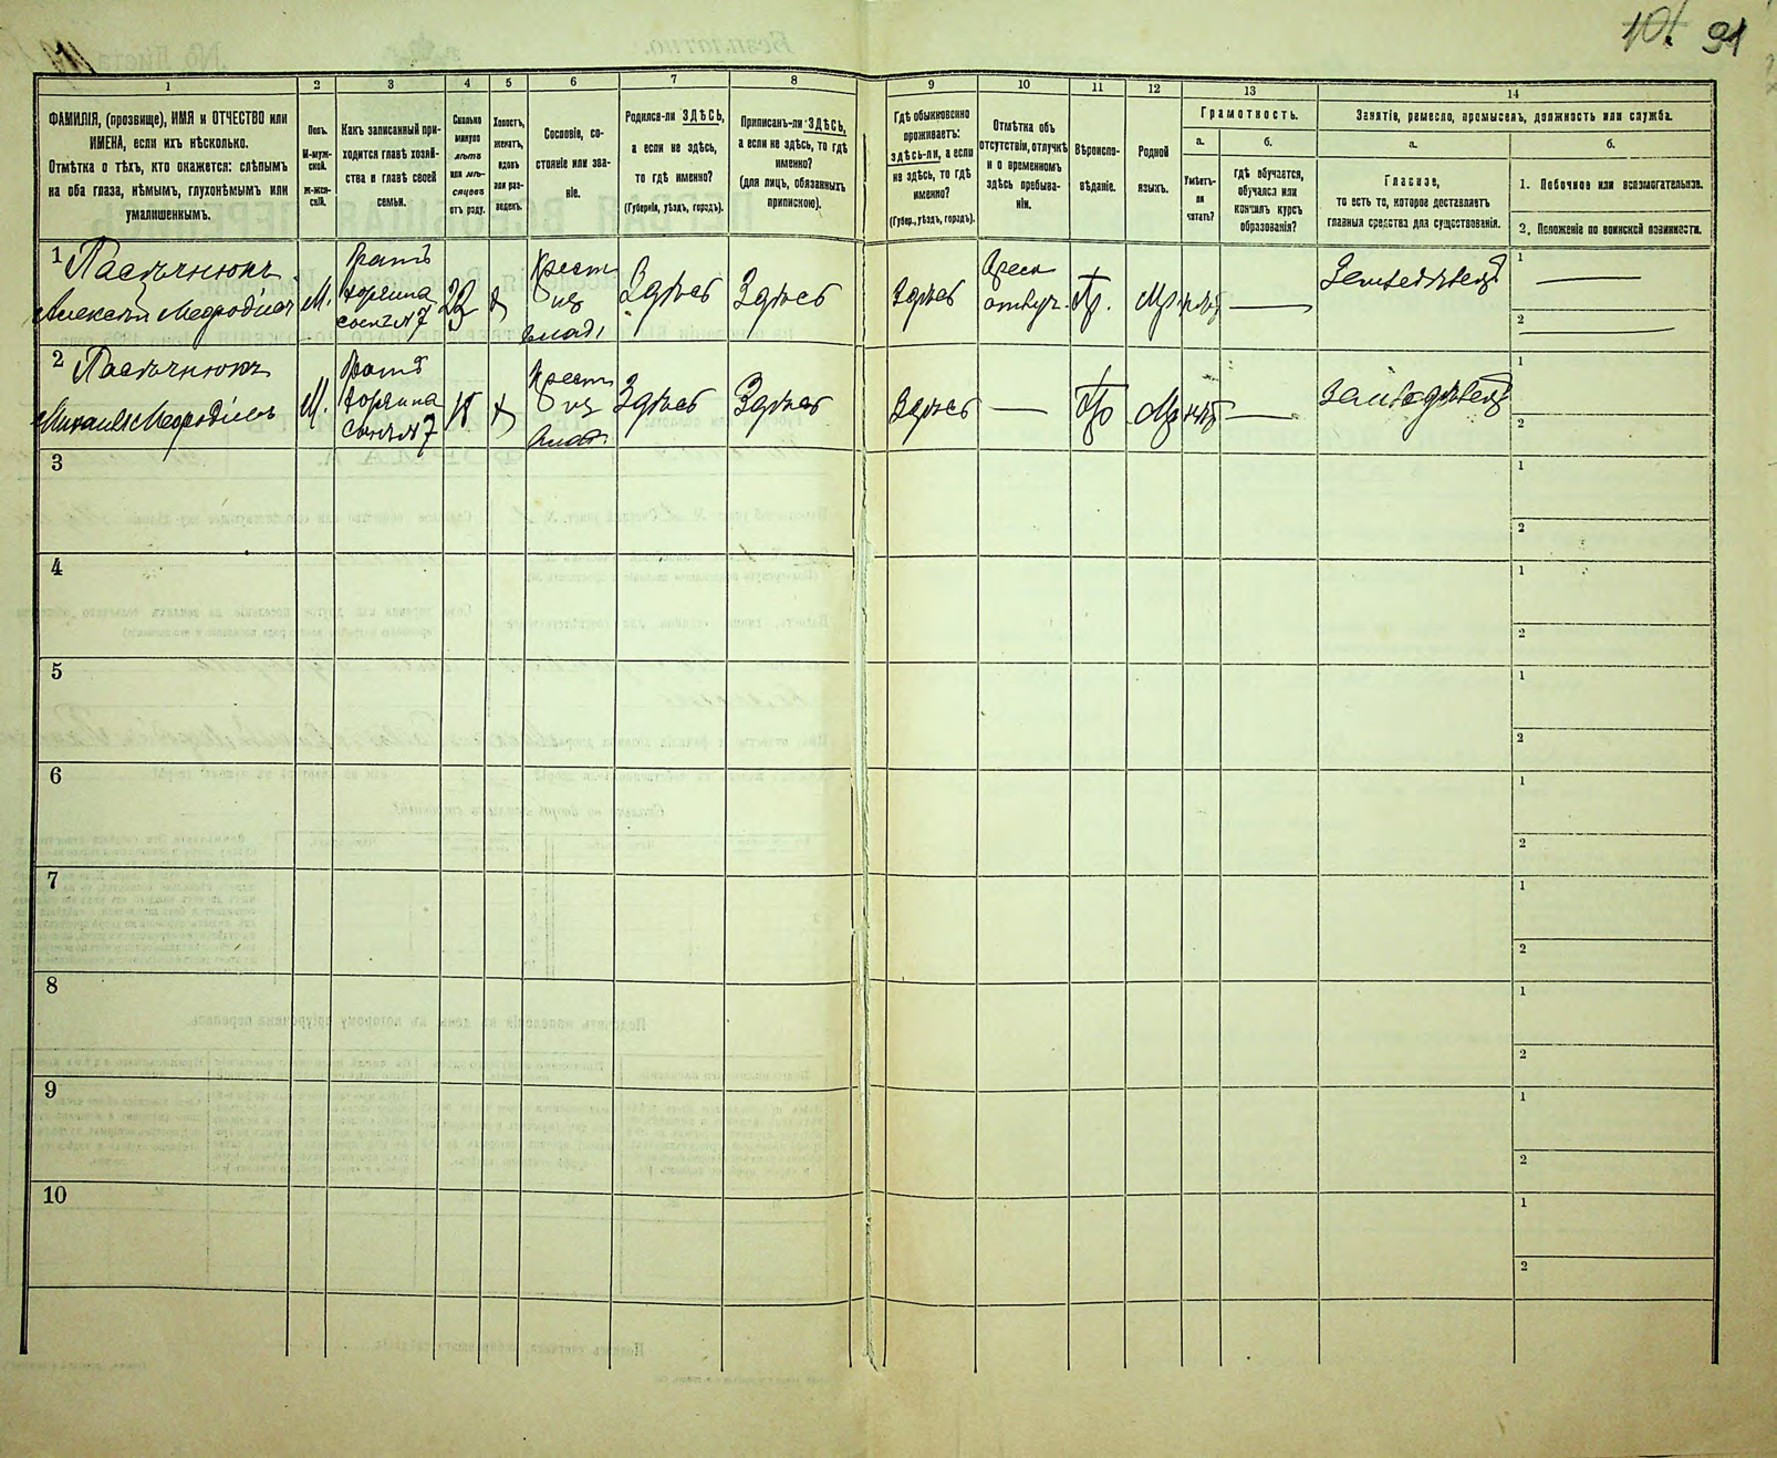 91
1
2
3
4
5
6
7
8
9
10
11
12
13
14
ФАМИЛІЯ, (прозвище), ИМЯ и ОТЧЕСТВО или
ИМЕНА, если ихъ нѣсколько.
Отмѣтка о тѣхъ, кто окажется: слѣпымъ
на оба глаза, нѣмымъ, глухонѣмымъ или
умалишеннымъ.
Полъ.
М-муж-
ской.
Ж-жен-
скій.
Какъ записанный при-
ходится главѣ хозяй-
ства и главѣ своей
семьи.
Сколько
минуло
лѣтъ
или мѣ-
сяцевъ
отъ роду.
Холостъ,
женатъ,
вдовъ
или раз-
веденъ.
Сословіе, со-
стояніе или зва-
ніе.
Родился-ли ЗДѢСЬ,
а если не здѣсь,
то гдѣ именно?
(Губернія, уѣздъ, городъ).
Приписанъ-ли ЗДѢСЬ,
а если не здѣсь, то гдѣ
именно?
(для лицъ, обязанныхъ
припискою).
Гдѣ обыкновенно
проживаетъ:
здѣсь-ли, а если
не здѣсь, то гдѣ
именно?
(Губер., уѣздъ, городъ).
Отмѣтка объ
отсутствіи, отлучкѣ
и о временномъ
здѣсь пребыва-
ніи.
Вѣроиспо-
вѣданіе.
Родной
языкъ.
Грамотность.
а.
Умѣетъ-
ли
читать?
б.
гдѣ обучается,
обучался или
кончилъ курсъ
образованія?
Занятіе, ремесло, промыселъ, должность или служба.
а.
Главное,
то есть то, которое доставляетъ
главныя средства для существованія.
б.
1. Побочное или вспомогательное.
2. Положеніе по воинской повинности.
1
Пасѣчнюкъ
Алексѣй
М.
Братъ
хозяина
№ 7
Крест
изъ
Здѣсь
Здѣсь
Здѣсь
Пр.
Земледѣлецъ
1
2
2
Пасѣчнюкъ
Михаилъ
М.
Братъ
хозяина
№ 7
Крест
изъ
Здѣсь
Здѣсь
Здѣсь
Земледѣлецъ
1
2
3
1
2
4
1
2
5
1
2
6
1
2
7
1
2
8
1
2
9
1
2
10
1
2